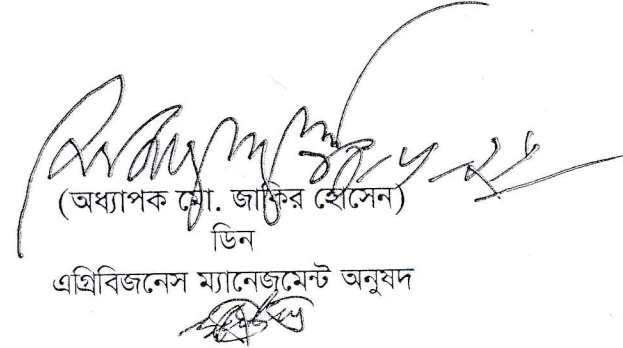 (অধ্যাপক মো. জাকির হোসেন)
ডিন
এগ্রিবিজনেস ম্যানেজমেন্ট অনুষদ